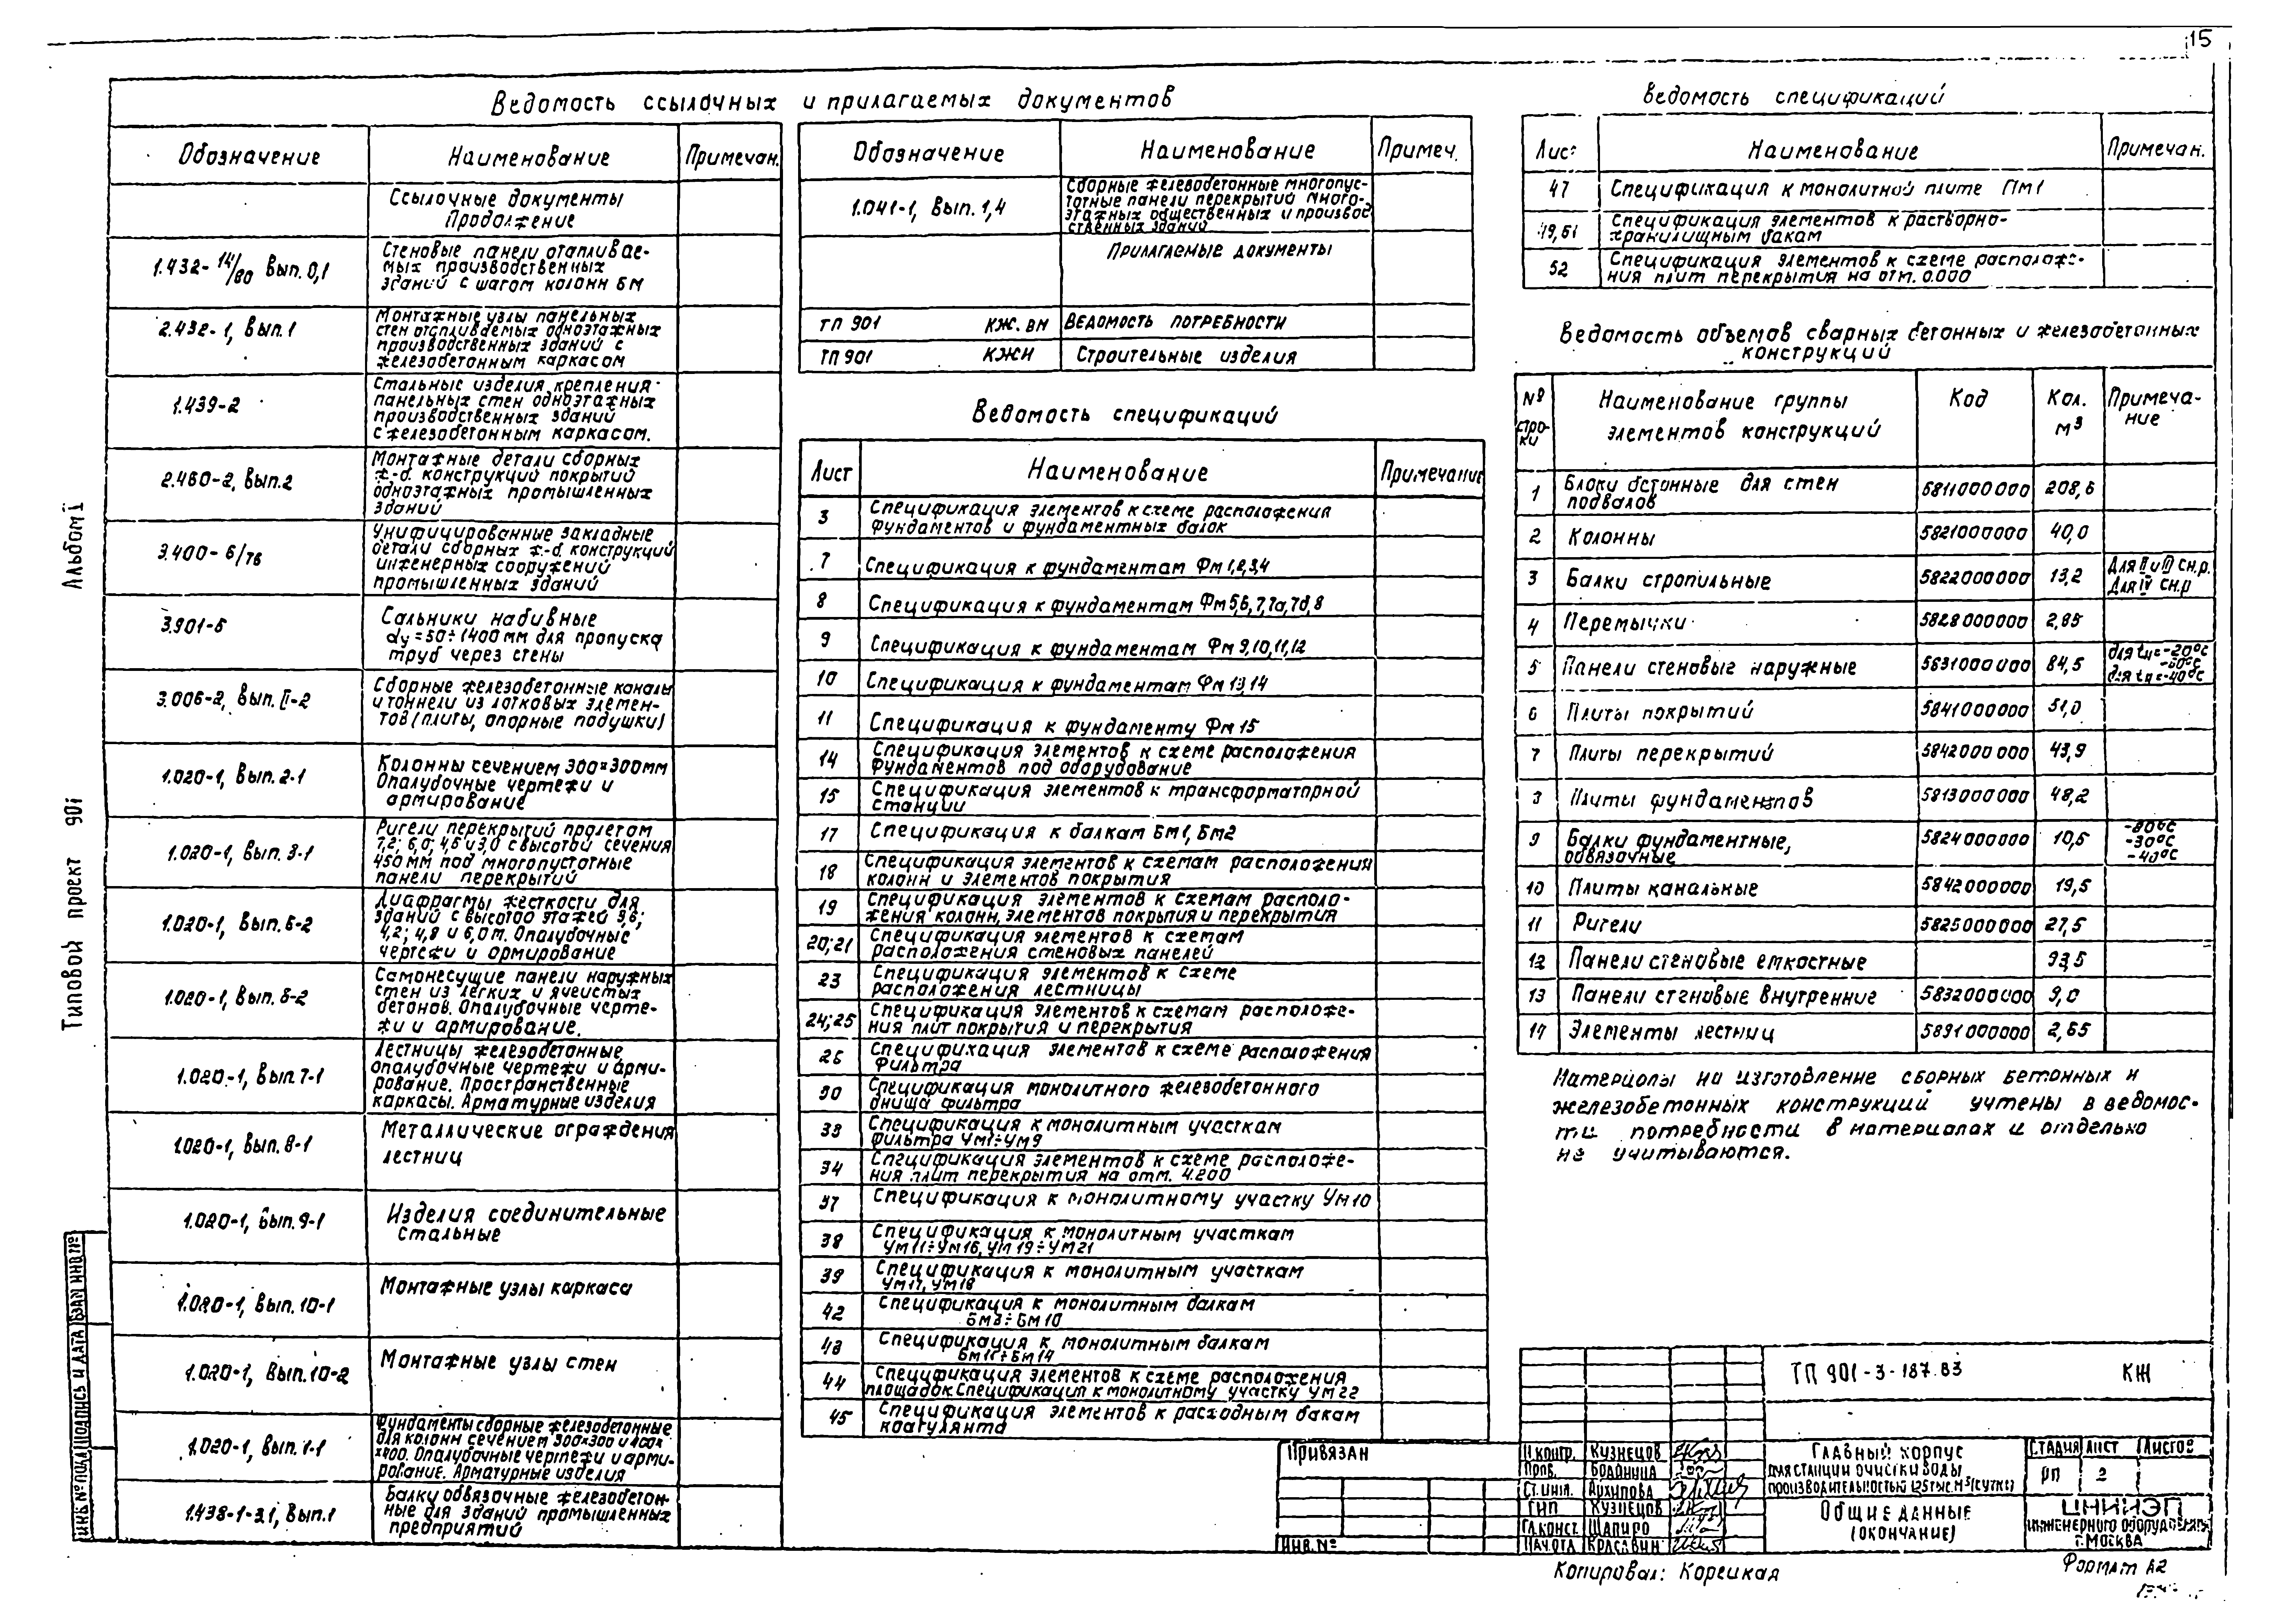 15
Ведомость ссылочных и прилагаемых документов
Обозначение
Наименование
Примечан.
Ссылочные документы
Продолжение
1.432-14/80 Вып. 0,1
Стеновые панели отапливае-
мых производственных
зданий с шагом колонн 6м
2.432-1, Вып.1
Монтажные узлы панельных
стен отапливаемых одноэтажных
производственных зданий с
железобетонным каркасом
1.439-2
Стальные изделия крепления
панельных стен одноэтажных
производственных зданий
с железобетонным каркасом.
2.460-2, Вып.2
Монтажные детали сборных
ж.-б. конструкций покрытий
одноэтажных промышленных
зданий
3.400-6/76
Унифицированные закладные
детали сборных ж.-б. конструкций
инженерных сооружений
промышленных зданий
3.901-5
Сальники набивные
dy=50÷1400мм для пропуска
труб через стены
3.006-2, Вып. II-2
Сборные железобетонные каналы
и тоннели из лотковых элемен-
тов (плиты, опорные подушки)
1.020-1, Вып. 2-1
Колонны сечением 300×300мм
Опалубочные чертежи и
армирование
1.020-1, Вып. 3-1
Ригели перекрытий пролетом
7,2; 6,0; 4,5 и 3,0 с высотой сечения
450мм под многопустотные
панели перекрытий
1.020-1, Вып. 6-2
Диафрагмы жесткости для
зданий с высотой этажей 3,6;
4,2; 4,8 и 6,0м. Опалубочные
чертежи и армирование
1.020-1, Вып. 8-2
Самонесущие панели наружных
стен из легких и ячеистых
бетонов. Опалубочные черте-
жи и армирование.
1.020-1, Вып. 7-1
Лестницы железобетонные
опалубочные чертежи и арми-
рование. Пространственные
каркасы. Арматурные изделия
1.020-1, Вып. 8-1
Металлические ограждения
лестниц
1.020-1, Вып. 9-1
Изделия соединительные
стальные
1.020-1, Вып. 10-1
Монтажные узлы каркаса
1.020-1, Вып. 10-2
Монтажные узлы стен
1.020-1, Вып. 1-1
Фундаменты сборные железобетонные
для колонн сечением 300×300 и 400×
×400. Опалубочные чертежи и арми-
рование. Арматурные изделия
1.438-1-3.1, Вып.1
Балки обвязочные железобетон-
ные для зданий промышленных
предприятий
Обозначение
Наименование
Примеч.
1.041-1, Вып. 1,4
Сборные железобетонные многопус-
тотные панели перекрытий много-
этажных общественных и производ
ственных зданий
Прилагаемые документы
ТП 901 КЖ.ВМ
Ведомость потребности
ТП 901 КЖИ
Строительные изделия
Ведомость спецификаций
Лист
Наименование
Примечание
3
Спецификация элементов к схеме расположения
фундаментов и фундаментных балок
7
Спецификация к фундаментам Фм 1,2,3,4
8
Спецификация к фундаментам Фм 5,6,7,7а,7б,8
9
Спецификация к фундаментам Фм 9,10,11,12
10
Спецификация к фундаментам Фм 13,14
11
Спецификация к фундаменту Фм 15
14
Спецификация элементов к схеме расположения
фундаментов под оборудование
15
Спецификация элементов к трансформаторной
станции
17
Спецификация к балкам Бм1, Бм2
18
Спецификация элементов к схемам расположения
колонн и элементов покрытия
19
Спецификация элементов к схемам располо-
жения колонн, элементов покрытия и перекрытия
20;21
Спецификация элементов к схемам
расположения стеновых панелей
23
Спецификация элементов к схеме
расположения лестницы
24;25
Спецификация элементов к схемам расположе-
ния плит покрытия и перекрытия
26
Спецификация элементов к схеме расположения
Фильтра
30
Спецификация монолитного железобетонного
днища фильтра
33
Спецификация к монолитным участкам
фильтра Ум1÷Ум9
34
Спецификация элементов к схеме расположе-
ния плит перекрытия на отм. 4.200
37
Спецификация к монолитному участку Ум10
38
Спецификация к монолитным участкам
Ум11÷Ум16, Ум19÷Ум21
39
Спецификация к монолитным участкам
Ум17, Ум18
42
Спецификация к монолитным балкам
Бм3÷Бм10
43
Спецификация к монолитным балкам
Бм11÷Бм14
44
Спецификация элементов к схеме расположения
площадок. Спецификация к монолитному участку Ум22
45
Спецификация элементов к расходным бакам
коагулянта
Ведомость спецификаций
Лист
Наименование
Примечан.
47
Спецификация к монолитной плите Пм1
49,51
Спецификация элементов к растворно-
хранилищным бакам
52
Спецификация элементов к схеме расположе-
ния плит перекрытия на отм. 0.000
Ведомость объемов сварных бетонных и железобетонных
конструкций
№ стро-ки
Наименование группы
элементов конструкций
Код
Кол. м³
Примеча-
ние
1 Блоки бетонные для стен подвалов 5811000000 208,6
2 Колонны 5821000000 40,0
3 Балки стропильные 5822000000 13,2 Для II и III сн.р. Для IV сн.р
4 Перемычки 5828000000 2,85
5 Панели стеновые наружные 5631000000 84,5 для tн=-20°С -30°С для tн=-40°С
6 Плиты покрытий 5841000000 51,0
7 Плиты перекрытий 5842000000 43,9
8 Плиты фундаментов 5813000000 48,2
9 Балки фундаментные, обвязочные 5824000000 10,5 -30°С -40°С
10 Плиты канальные 5842000000 19,5
11 Ригели 5825000000 27,5
12 Панели стеновые емкостные 93,5
13 Панели стеновые внутренние 5832000000 9,0
14 Элементы лестниц 5891000000 2,65
Материалы на изготовление сборных бетонных и
железобетонных конструкций учтены в ведомос-
ти потребности в материалах и отдельно
не учитываются.
ТП 901-3-187.83 КЖ
Привязан
Инв.№
Н.контр. Кузнецов
Пров. Бродиинa
Ст.инж. Архипова
ГИП Кузнецов
Гл.конст. Шапиро
Нач.отд. Красавин
Главный корпус
для станции очистки воды
Общие данные
(окончание)
Стадия Лист Листов
РП 2
ЦНИИЭП
инженерного оборудования
г.Москва
Копировал: Корецкая
Формат А2
Альбом I
Типовой проект 901
Инв.№ подл. Подпись и дата Взам инв.№